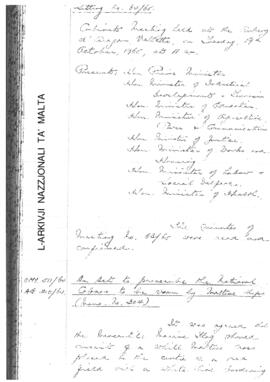 Sitting No. 54/65.
Cabinet Meeting held at the Auberge
d' Aragon Valletta on Tuesday, 19th
October, 1965, at 11 a.m.
Present: Hon Prime Minister
Hon. Minister of Industrial
Development & Tourism
Hon. Minister of Education
Hon. Minister of Agriculture,
Power & Communications
Hon Minister of Justice.
Hon. Minister of Works and
Housing
Hon. Minister of Labour &
Social Welfare.
Hon. Minister of Health.
L-ARKIVJI NAZZJONALI TA' MALTA
The minutes of
Meeting No. 53/65 were read and
confirmed.
An Act to prescribe the National
Colours to be worn by Maltese ships
It was agreed that
the Merchant Marine Flag should
consist of a white Maltese cross
placed in the centre of a red
field with a white line bordering